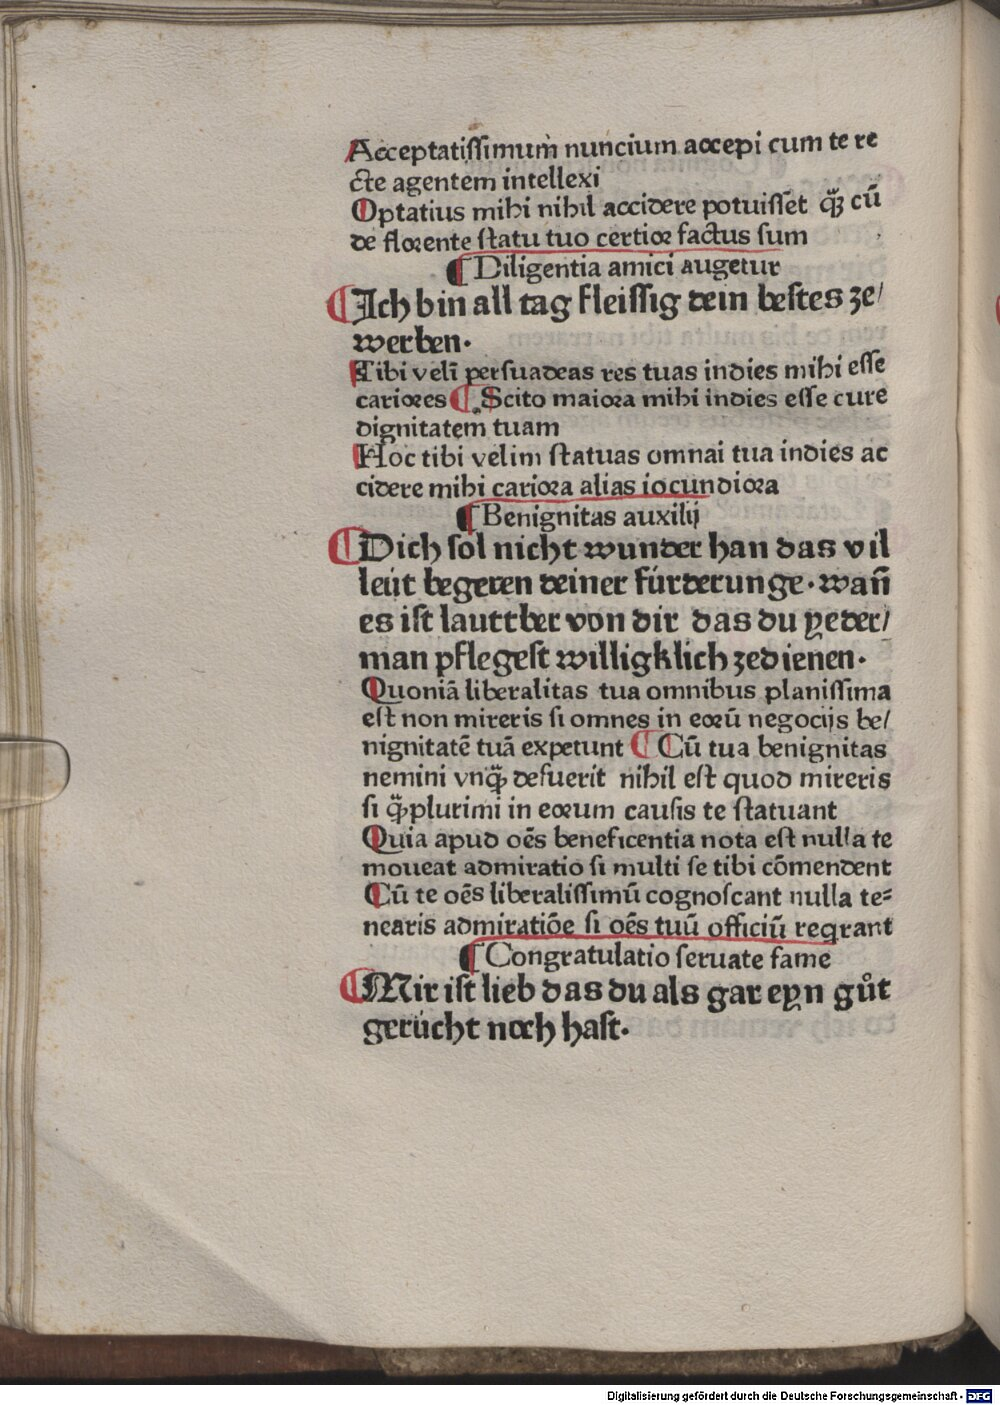 Acceptatissimum nuncium accepi cum te re
cte agentem intellexi
Optatius mihi nihil accidere potuisset q̃ȝ cū
de florente statu tuo certior factus sum
¶ Diligentia amici augetur
¶ Ich bin all tag fleissig dein bestes ze/
werben.
Tibi velī persuadeas res tuas indies mihi esse
cariores ¶ Scito maiora mihi indies esse cure
dignitatem tuam
Hoc tibi velim statuas omnai tua indies ac
cidere mihi cariora alias iocundiora
¶ Benignitas auxilij
¶ Dich sol nicht wunder han das vil
leüt begeren deiner fürderunge. wañ
es ist lauttber von dir das du yeder/
man pflegest willigklich zedienen.
Quoniā liberalitas tua omnibus planissima
est non mireris si omnes in eorū negocijs be/
nignitatē tuā expetunt ¶ Cū tua benignitas
nemini vnq̃ȝ defuerit nihil est quod mireris
si q̃ȝplurimi in eorum causis te statuant
Quia apud oēs beneficentia nota est nulla te
moueat admiratio si multi se tibi cōmendent
Cū te oēs liberalissimū cognoscant nulla te=
nearis admiratiōe si oēs tuū officiū reqrant
¶ Congratulatio seruate fame
¶ Mir ist lieb das du als gar eyn gůt
gerücht noch hast.
Digitalisierung gefördert durch die Deutsche Forschungsgemeinschaft - DFG